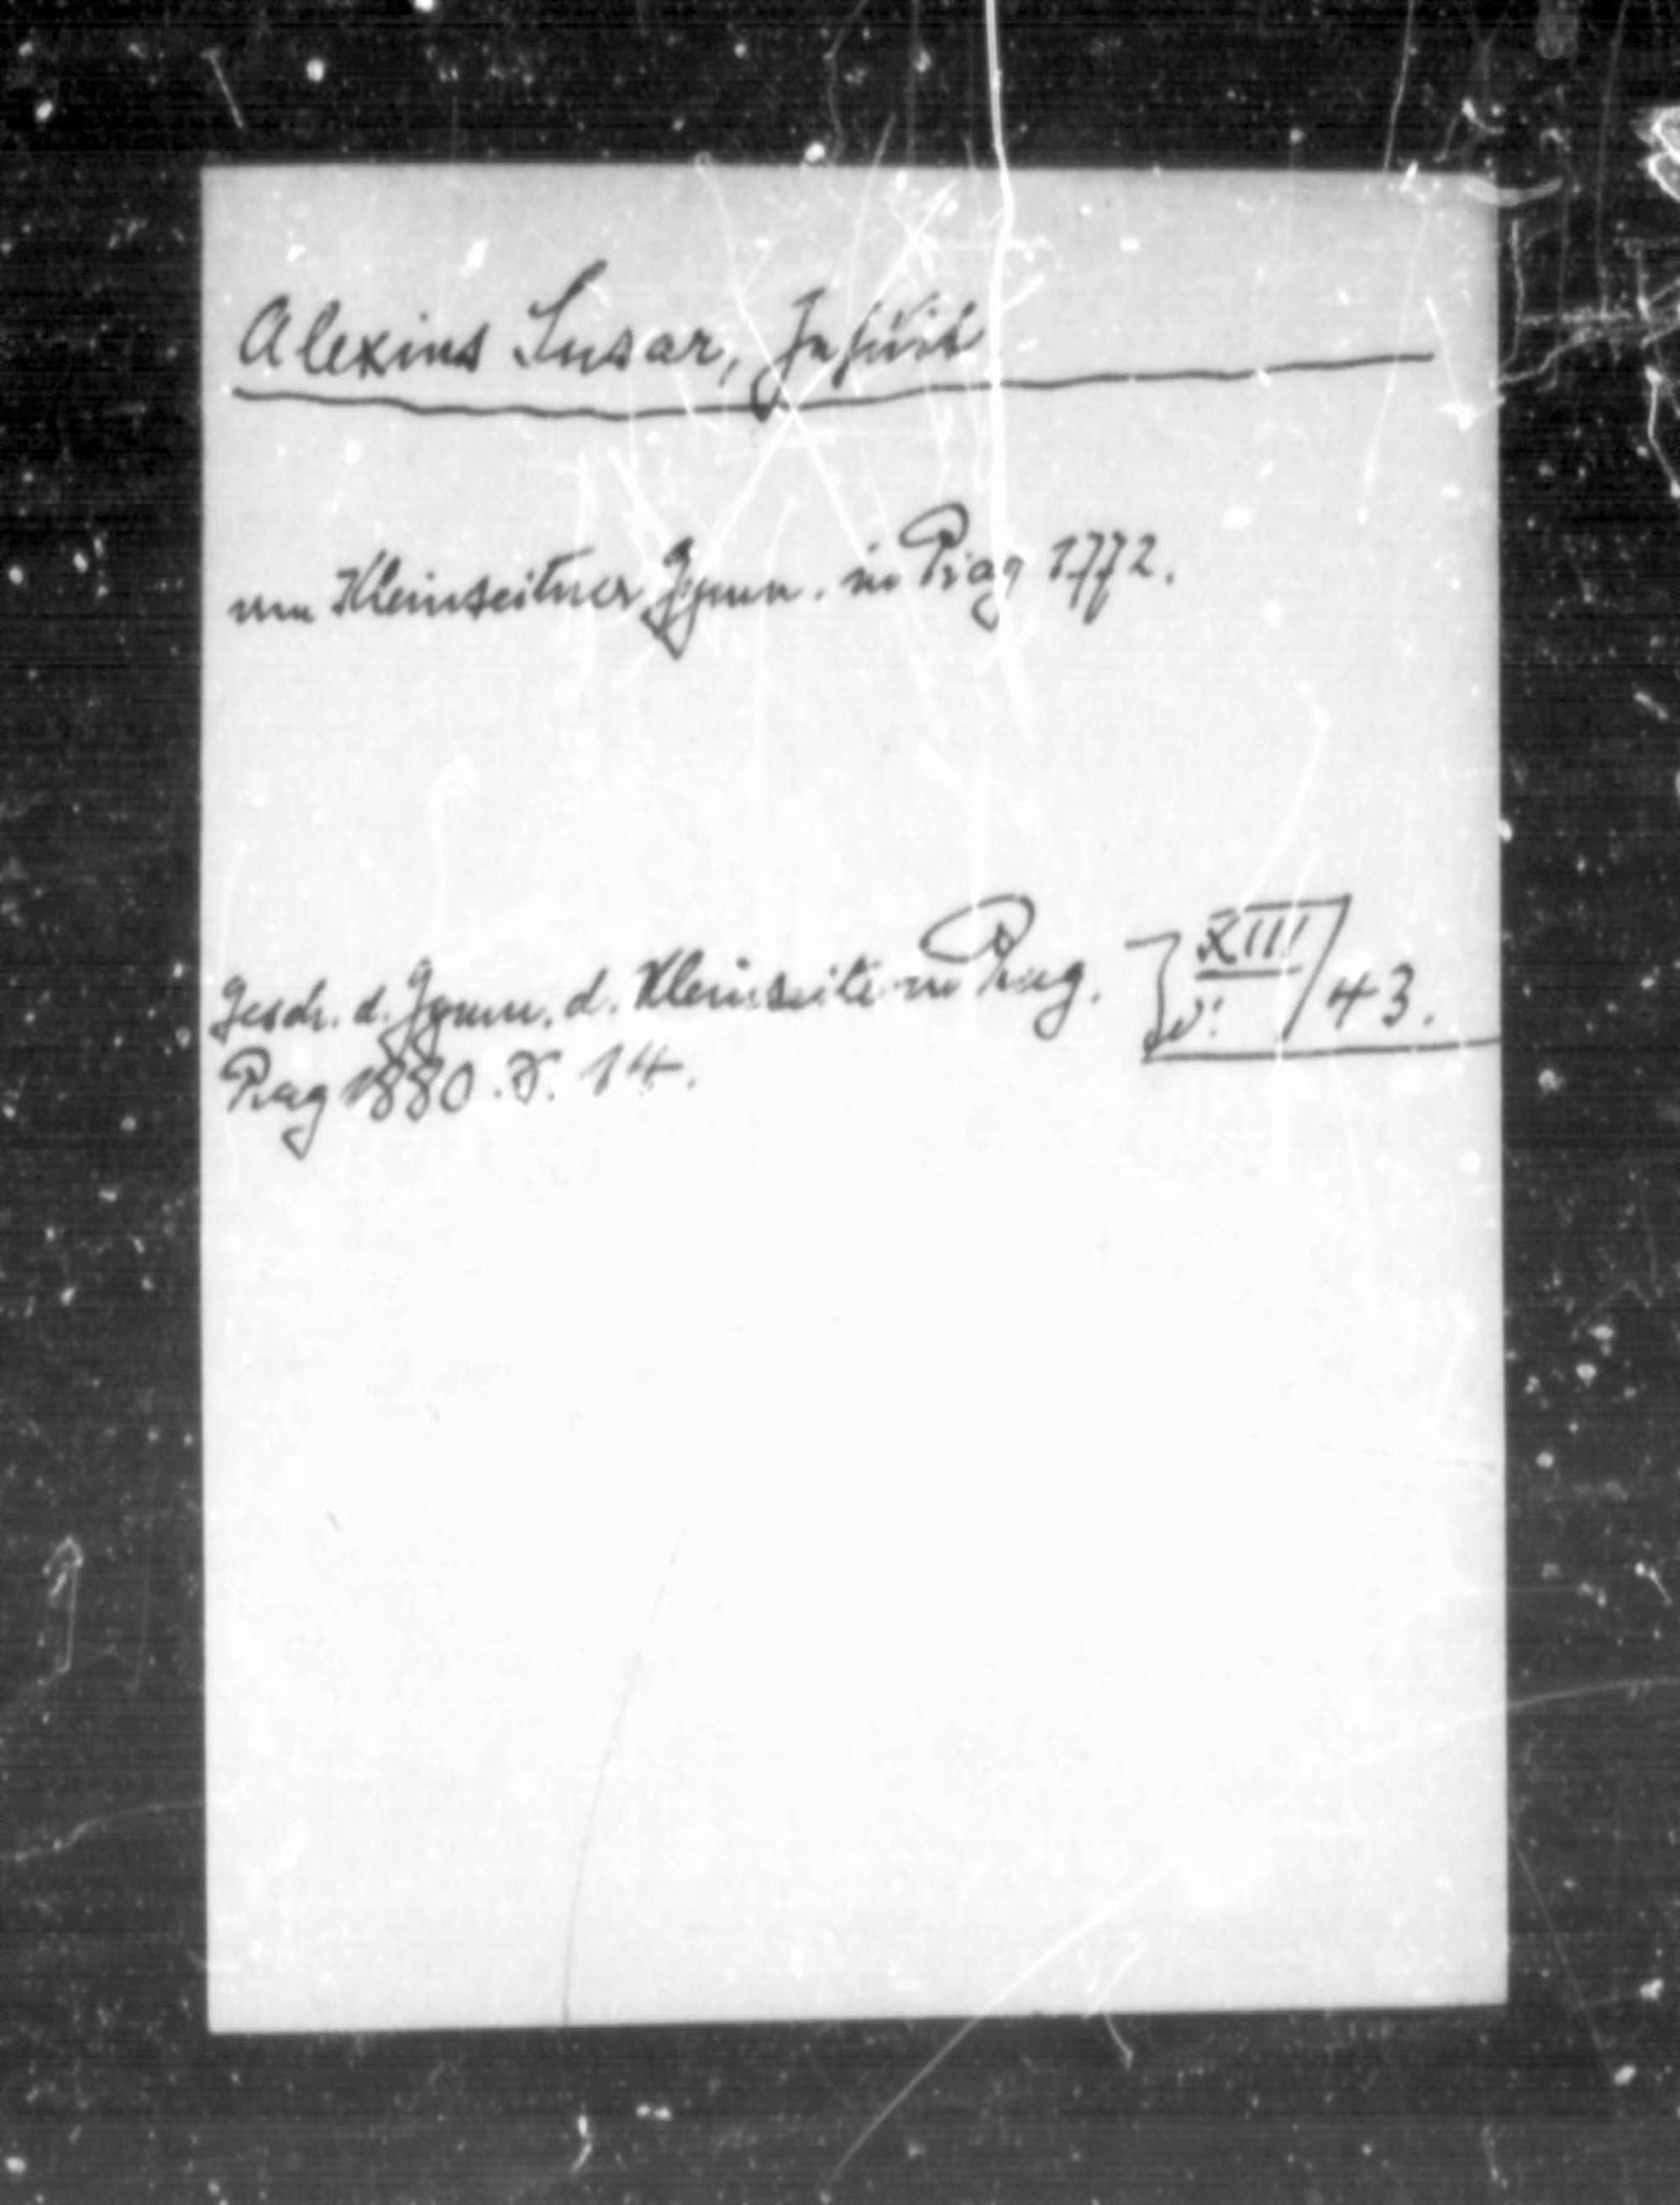 Alexius Susar, Jesuit
am Kleinseitner Gymn. in Prag 1772.
Gesch. d. Gymn. d. Kleinseite in Prag. XIII/43.
Prag 1880. S. 14.